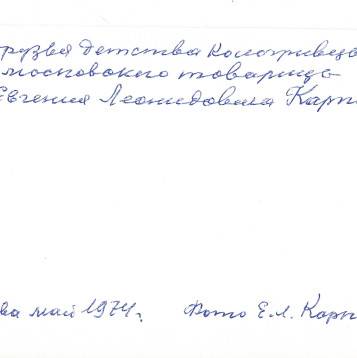 друзья детства Кологривца
московского товарища
Евгения Леонидовича Карп
ва май 1974 г. Фото Е.Л. Карп